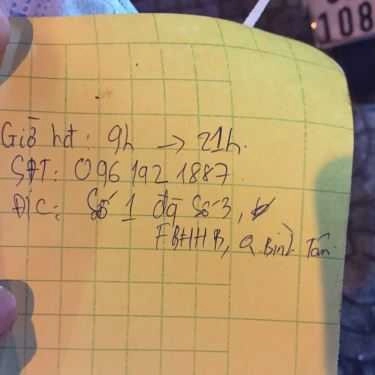 108
Giờ hđ: 9h → 21h.
SĐT: 096 192 1887.
Đ/c: Số 1 đg số 3,
FBHHB, Q Bình Tân.